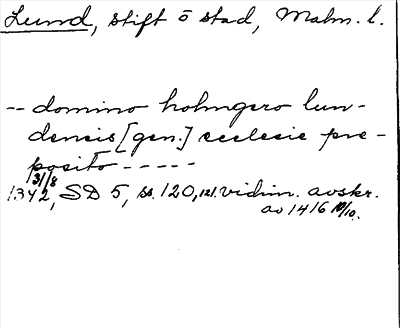 Lund, stift o stad, Malm. l.
-- domino holmgero lun-
densis [gen.] ecclesie pre-
posito -----
1342 31/8, SD 5, ss. 120, 121. vidim. avskr.
av 1416 10/10.